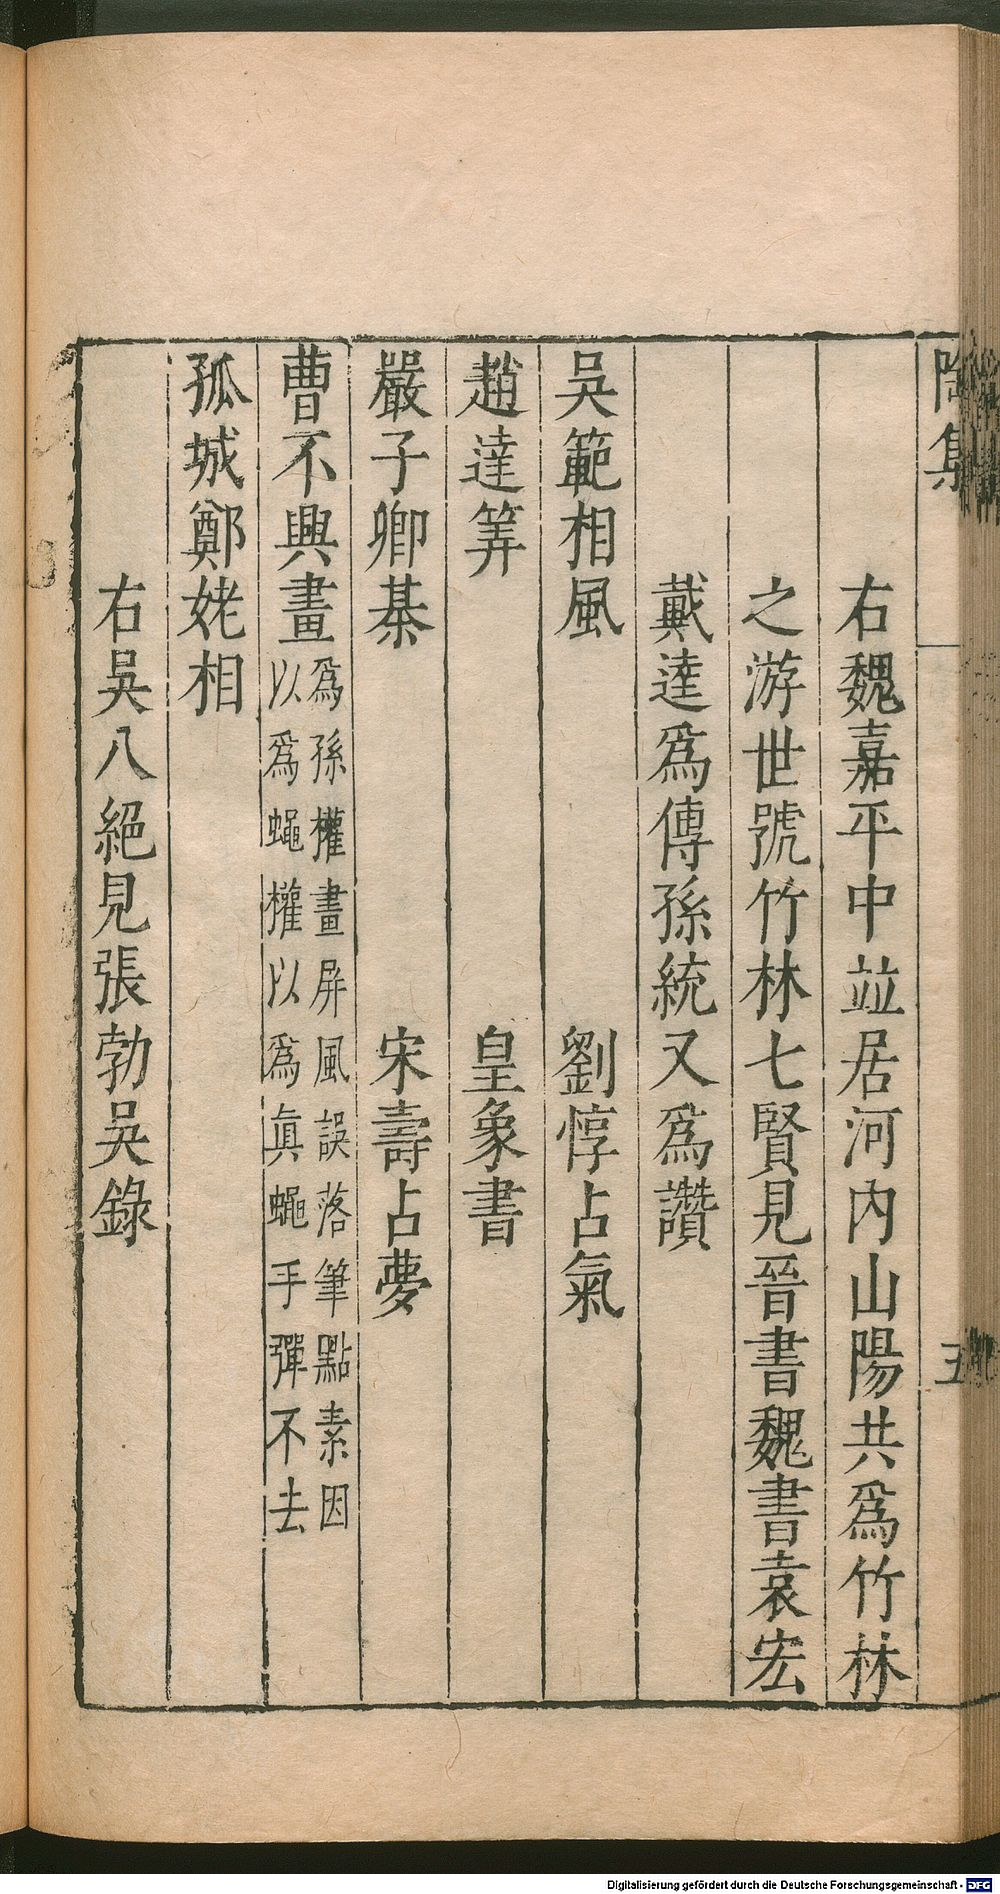 陶集
五
右魏嘉平中竝居河内山陽共爲竹林
之游世號竹林七賢見晉書魏書袁宏
戴逵爲傳孫統又爲讚
吳範相風 劉惇占氣
趙達筭 皇象書
嚴子卿棊 宋壽占夢
曹不興畫 爲孫權畫屏風誤落筆點素因
以爲蠅權以爲眞蠅手彈不去
孤城鄭姥相
右吳八絕見張勃吳錄
Digitalisierung gefördert durch die Deutsche Forschungsgemeinschaft - DFG